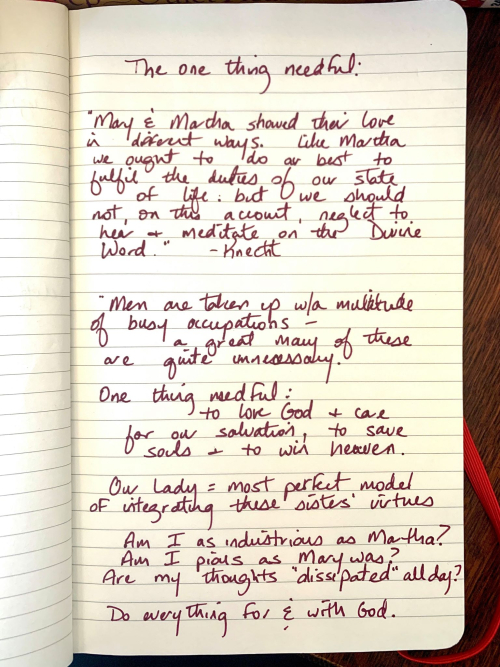 The one thing needful:
"Mary & Martha showed their love
in different ways. Like Martha
we ought to do our best to
fulfil the duties of our state
of life: but we should
not, on this account, neglect to
hear + meditate on the Divine
Word." - Knecht
"Men are taken up w/a multitude
of busy occupations -
a great many of these
are quite unnecessary."
One thing needful:
to love God + care
for our salvation, to save
souls + to win heaven.
Our Lady = most perfect model
of integrating these sisters' virtues
Am I as industrious as Martha?
Am I pious as Mary was?
Are my thoughts "dissipated" all day?
Do everything for & with God.